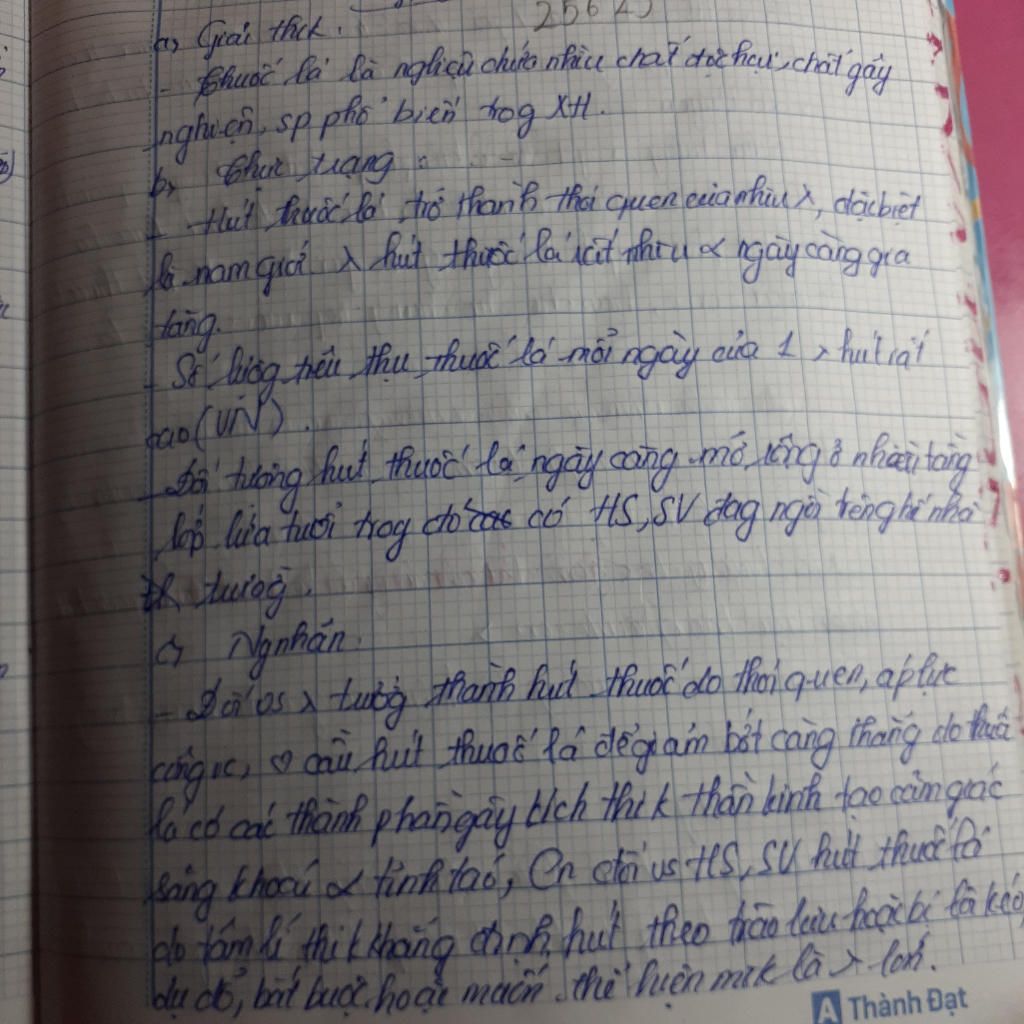 25625
a, Giải thik.
- Thuốc lá là ng liệu chứa nhiều chất độc hại, chất gây
nghiện, sp phổ biến trog XH.
b, Thực trạng:
- Hút thuốc lá trở thành thói quen của nhiều λ, đặc biệt
là nam giới λ hút thuốc lá rất nhiều α ngày càng gia
tăng.
- Số lượg tiêu thụ thuốc lá mỗi ngày của 1 λ hút rất
cao (VN).
- Đối tượng hút thuốc lá ngày càng mở rộng ở nhiều tầng
lớp lứa tuổi trog đó có HS, SV đag ngồi trên ghế nhà
trường.
c, Ng nhân.
- Đối vs λ trưởg thành hút thuốc do thói quen, áp lực
côg vc, cầu hút thuốc lá để giảm bớt căng thẳng do thuốc
lá có các thành phần gây kích thik thần kinh tạo cảm giác
sảng khoái α tỉnh táo, Cn đối vs HS, SV hút thuốc lá
do tâm lí thik khẳng định, hút theo trào lưu hoặc bị lôi kéo,
dụ dỗ, bắt buộc hoặc muốn thể hiện mik là λ lớn.
A Thành Đạt